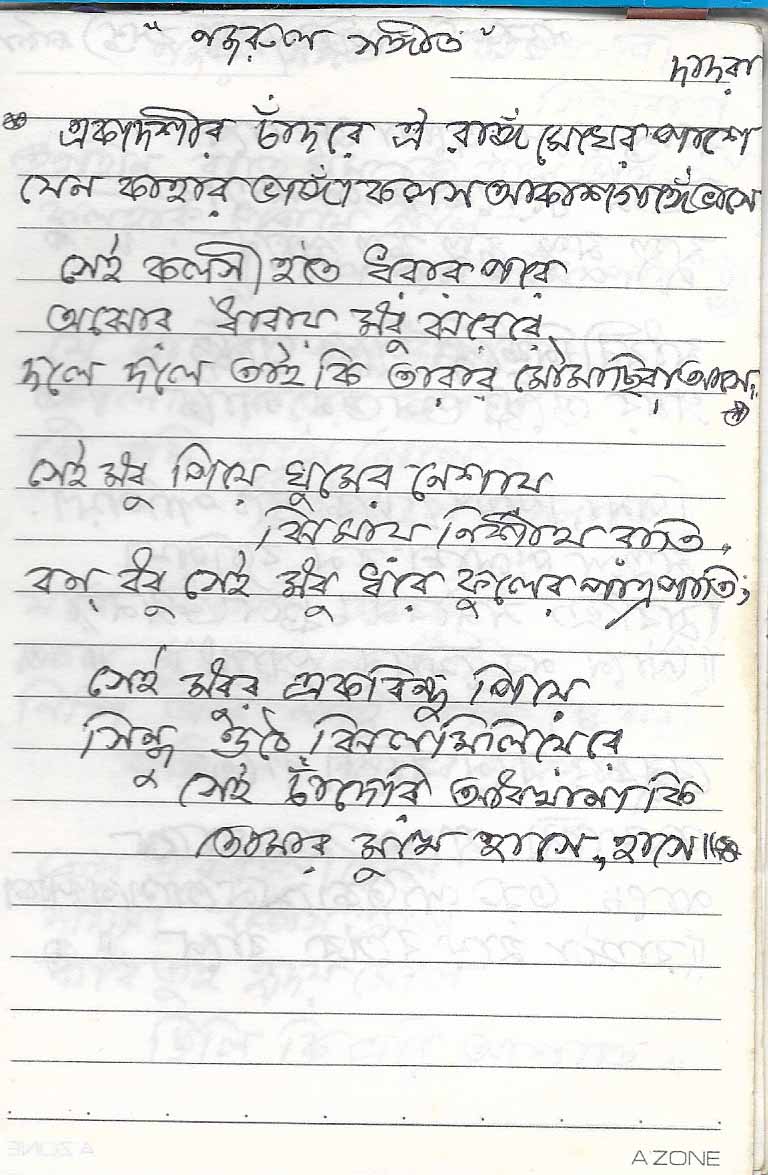 "নজরুল সঙ্গীত"
দাদরা
একাদশীর চাঁদরে ঐ রাঙা মেঘের পাশে
যেন কাহার ভাঙা কলস আকাশ গাঙে ভাসে
সেই কলসী হতে ধরার পরে
অঝোর ধারায় মধু ঝরেরে
দলে দলে তাই কি তারার মৌমাছিরা আসে,,
সেই মধু পিয়ে ঘুমের নেশায়
ঝিমায় নিশীথ রাতি,
বন্ বঁধু সেই মধু ধরে ফুলের পাত্র পাতি;
সেই মধুর একবিন্দু পিয়ে
সিন্ধু উঠে ঝিলমিলিয়েরে
সেই চাঁদেরি আধখানা কি
তোমার মুখে হাসে,, হাসে॥
A'ZONE